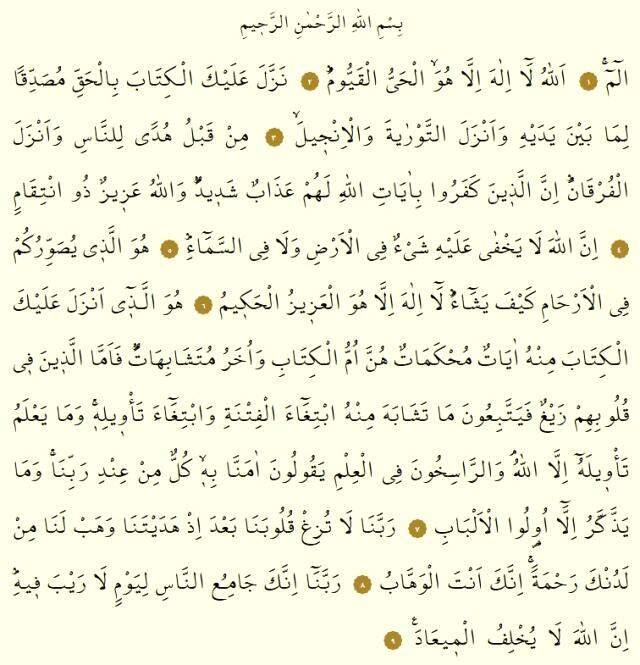 بِسْمِ اللهِ الرَّحْمٰنِ الرَّح۪يمِ
الٓمٓۚ ﴿١﴾ اَللهُ لَٓا اِلٰهَ اِلَّا هُوَۙ الْحَيُّ الْقَيُّومُۜ ﴿٢﴾ نَزَّلَ عَلَيْكَ الْكِتَابَ بِالْحَقِّ مُصَدِّقًا
لِمَا بَيْنَ يَدَيْهِ وَاَنْزَلَ التَّوْرٰيةَ وَالْاِنْج۪يلَۙ ﴿٣﴾ مِنْ قَبْلُ هُدًى لِلنَّاسِ وَاَنْزَلَ
الْفُرْقَانَۜ اِنَّ الَّذ۪ينَ كَفَرُوا بِاٰيَاتِ اللهِ لَهُمْ عَذَابٌ شَد۪يدٌۜ وَاللهُ عَز۪يزٌ ذُو انْتِقَامٍ
﴿٤﴾ اِنَّ اللهَ لَا يَخْفٰى عَلَيْهِ شَيْءٌ فِي الْاَرْضِ وَلَا فِي السَّمَٓاءِۜ ﴿٥﴾ هُوَ الَّذ۪ي يُصَوِّرُكُمْ
فِي الْاَرْحَامِ كَيْفَ يَشَٓاءُۜ لَٓا اِلٰهَ اِلَّا هُوَ الْعَز۪يزُ الْحَك۪يمُ ﴿٦﴾ هُوَ الَّذ۪ٓي اَنْزَلَ عَلَيْكَ
الْكِتَابَ مِنْهُ اٰيَاتٌ مُحْكَمَاتٌ هُنَّ اُمُّ الْكِتَابِ وَاُخَرُ مُتَشَابِهَاتٌۜ فَاَمَّا الَّذ۪ينَ ف۪ي
قُلُوبِهِمْ زَيْغٌ فَيَتَّبِعُونَ مَا تَشَابَهَ مِنْهُ ابْتِغَٓاءَ الْفِتْنَةِ وَابْتِغَٓاءَ تَأْو۪يلِه۪ۚ وَمَا يَعْلَمُ
تَأْو۪يلَهُٓ اِلَّا اللهُۢ وَالرَّاسِخُونَ فِي الْعِلْمِ يَقُولُونَ اٰمَنَّا بِه۪ۙ كُلٌّ مِنْ عِنْدِ رَبِّنَاۚ وَمَا
يَذَّكَّرُ اِلَّٓا اُو۬لُوا الْاَلْبَابِ ﴿٧﴾ رَبَّنَا لَا تُزِغْ قُلُوبَنَا بَعْدَ اِذْ هَدَيْتَنَا وَهَبْ لَنَا مِنْ
لَدُنْكَ رَحْمَةًۚ اِنَّكَ اَنْتَ الْوَهَّابُ ﴿٨﴾ رَبَّنَٓا اِنَّكَ جَامِعُ النَّاسِ لِيَوْمٍ لَا رَيْبَ ف۪يهِۜ
اِنَّ اللهَ لَا يُخْلِفُ الْم۪يعَادَ۟ ﴿٩﴾